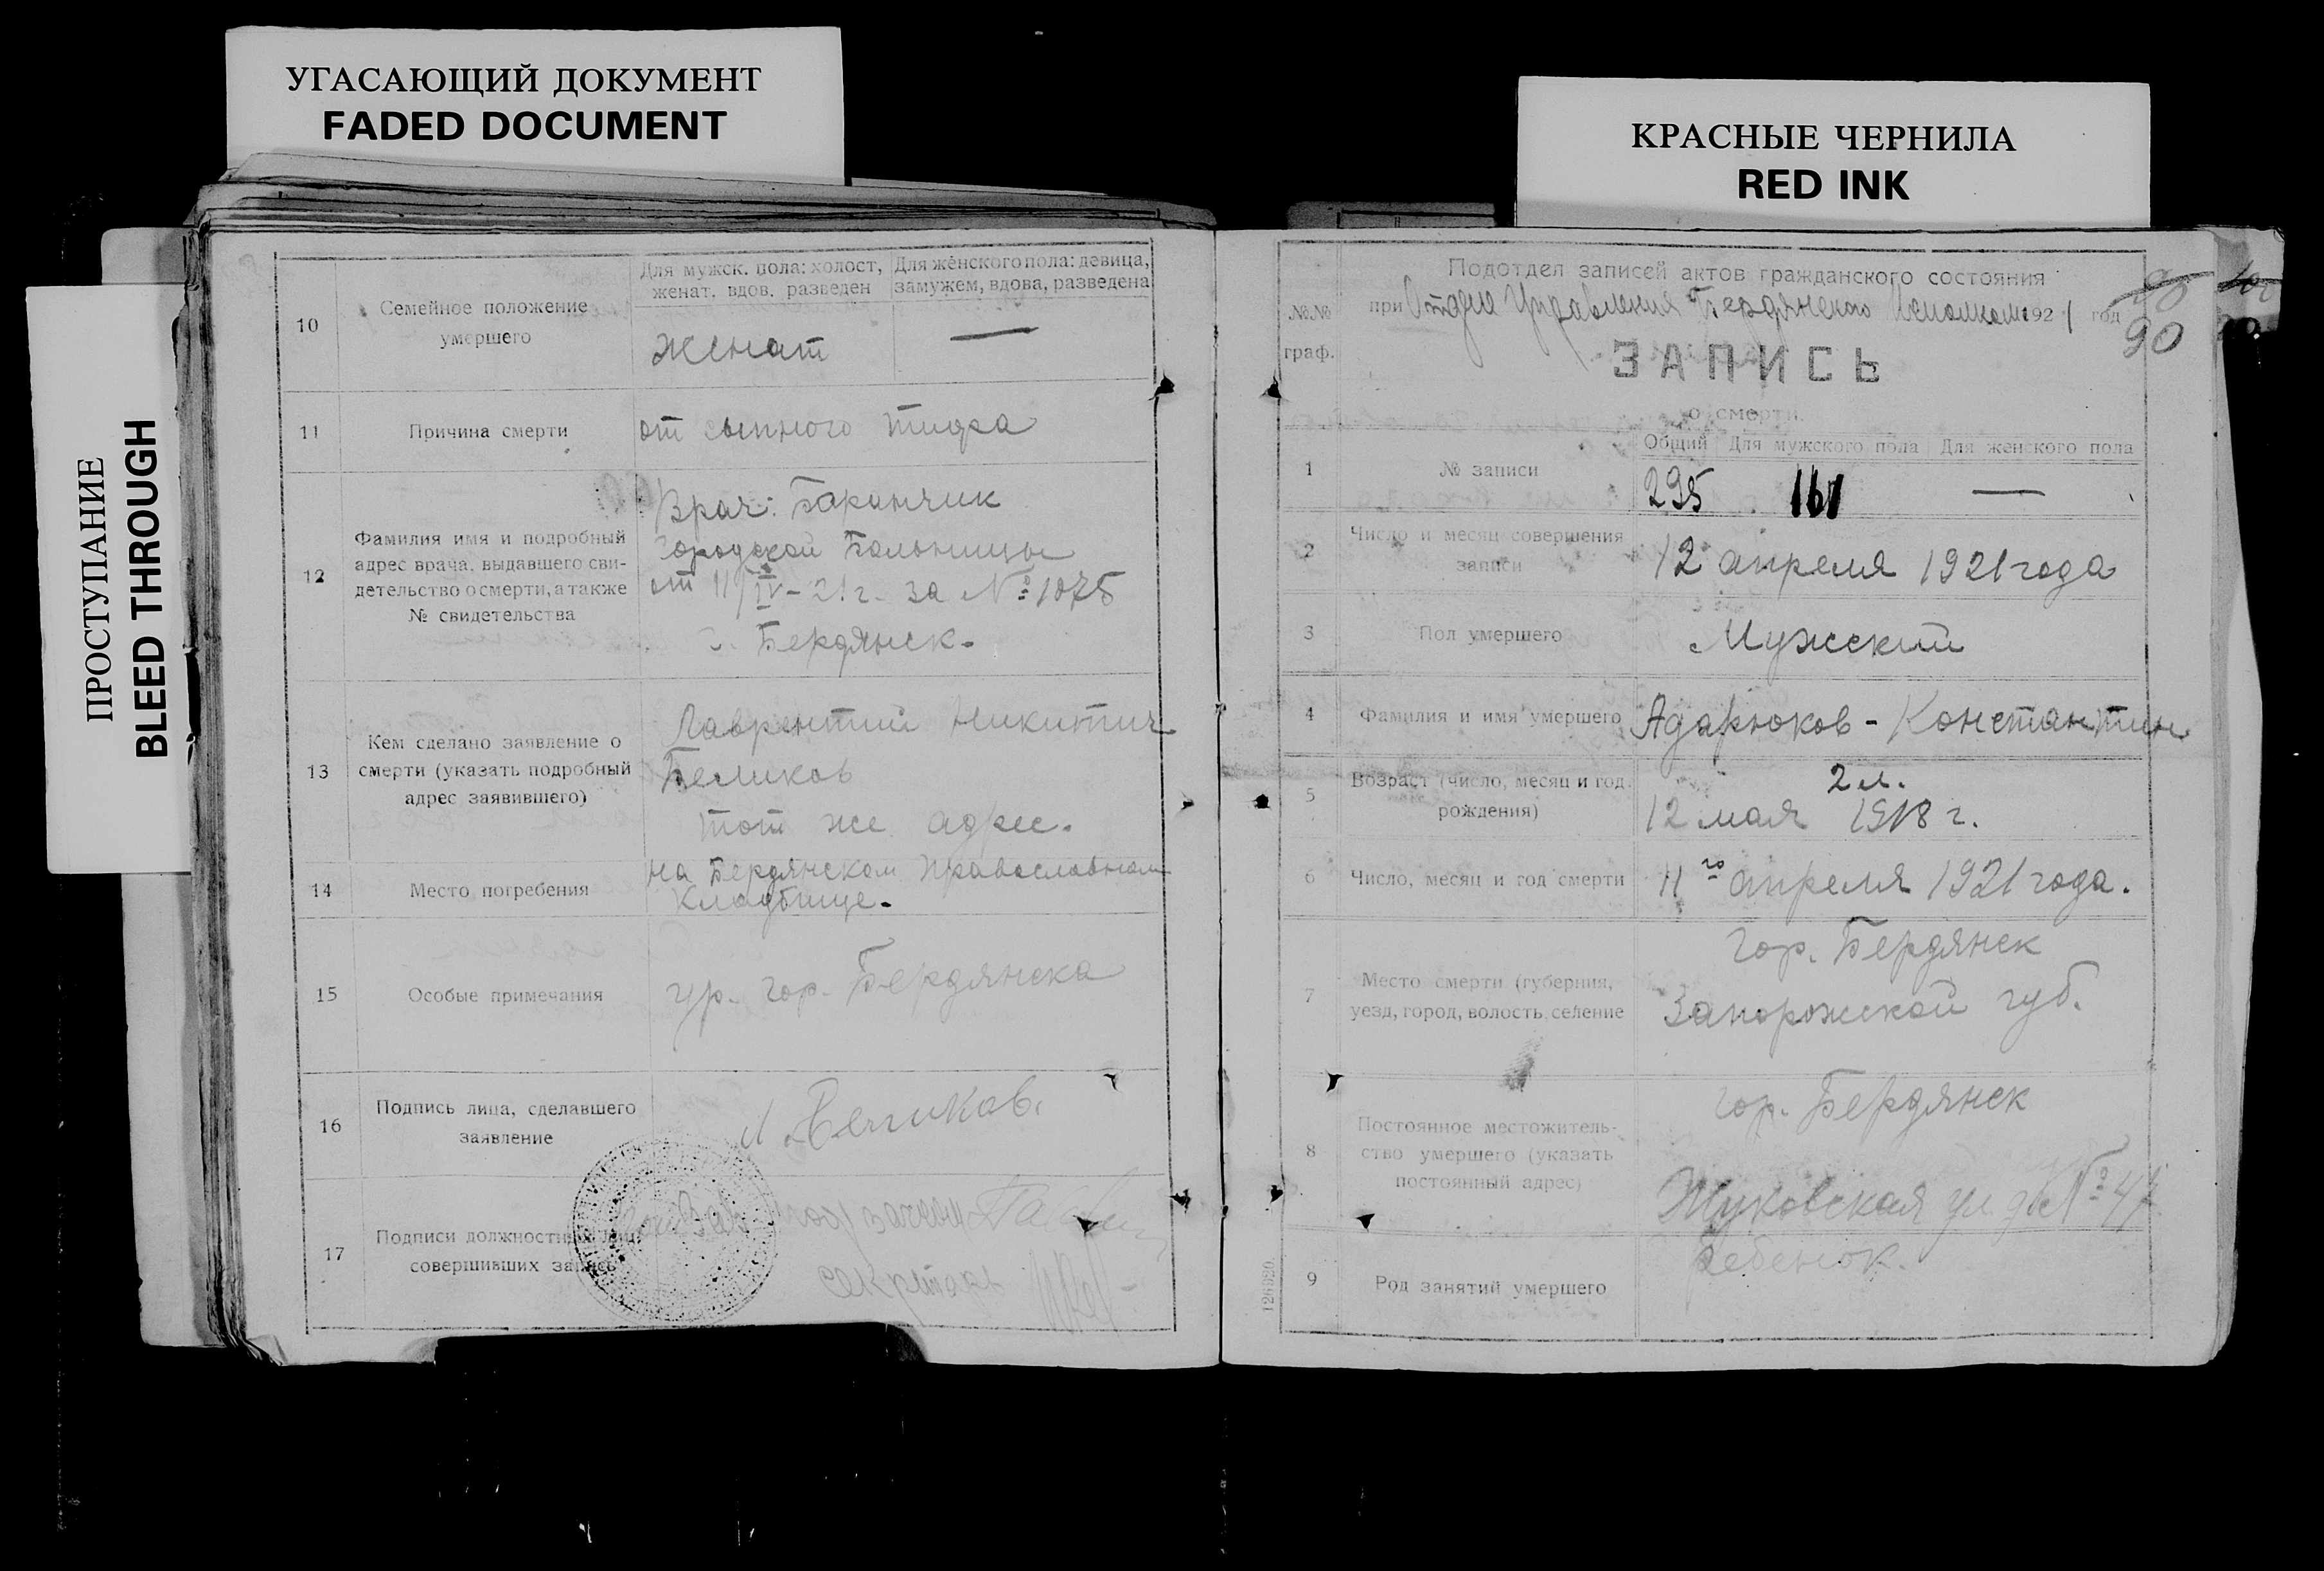 УГАСАЮЩИЙ ДОКУМЕНТ
FADED DOCUMENT
КРАСНЫЕ ЧЕРНИЛА
RED INK
ПРОСТУПАНИЕ
BLEED THROUGH
10
Семейное положение
умершего
Для мужск. пола: холост,
женат, вдов, разведен
Для женского пола: девица,
замужем, вдова, разведена
женат
—
11
Причина смерти
от сыпного тифа
12
Фамилия имя и подробный
адрес врача, выдавшего сви-
детельство о смерти, а также
№ свидетельства
Врач: Баранчик
Городской Больницы
от 11/IV-21 г. за № 1075
г. Бердянск.
13
Кем сделано заявление о
смерти (указать подробный
адрес заявившего)
Лаврентий Никитич
Беликов
тот же адрес.
14
Место погребения
на Бердянском Православном
Кладбище.
15
Особые примечания
гр. гор. Бердянска
16
Подпись лица, сделавшего
заявление
Л. Беликов.
17
Подписи должностных лиц
совершивших запись
секретарь
№№
граф.
Подотдел записей актов гражданского состояния
при Отделе Управления Бердянского Исполкома 1921 год
90
90
ЗАПИСЬ
о смерти.
1
№ записи
Общий
Для мужского пола
Для женского пола
295
161
—
2
Число и месяц совершения
записи
12 апреля 1921 года
3
Пол умершего
Мужский
4
Фамилия и имя умершего
Адарюков - Константин
5
Возраст (число, месяц и год
рождения)
2 л.
12 мая 1918 г.
6
Число, месяц и год смерти
11го апреля 1921 года.
7
Место смерти (губерния,
уезд, город, волость, селение
Гор. Бердянск
Запорожской губ.
8
Постоянное местожитель-
ство умершего (указать
постоянный адрес)
гор. Бердянск
Жуковская ул. д. № 47
9
Род занятий умершего
ребенок.
126020